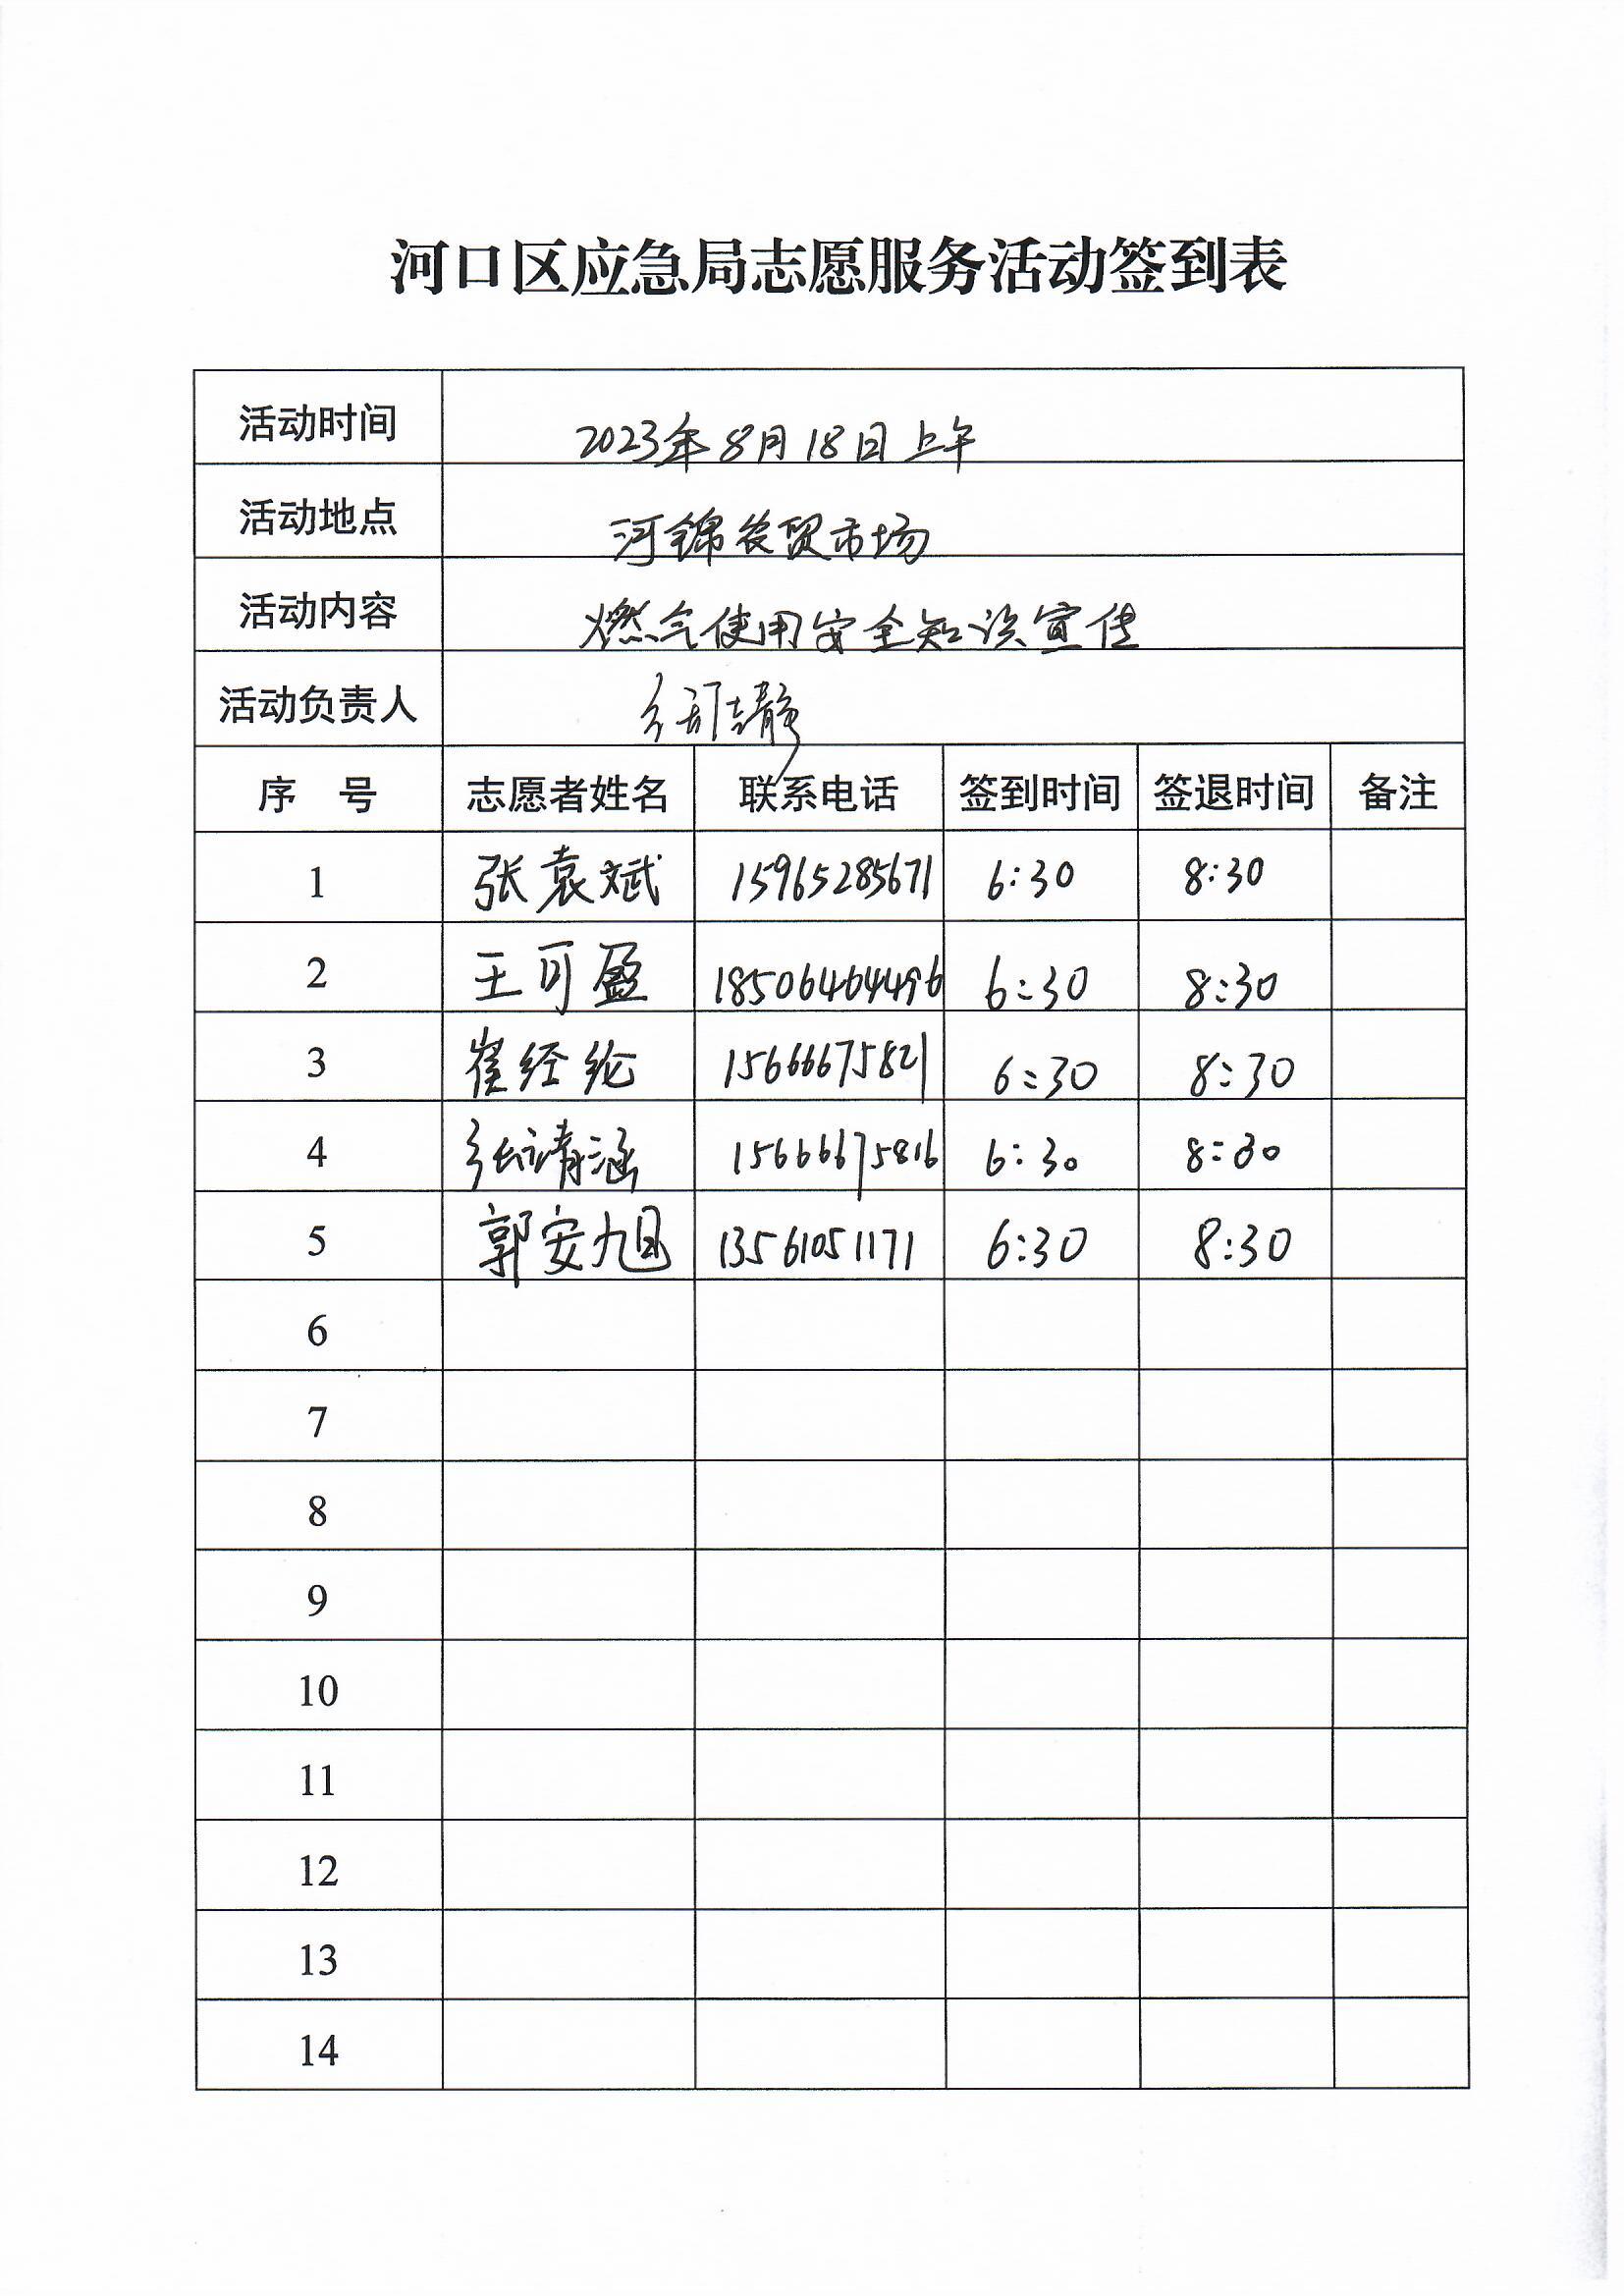 河口区应急局志愿服务活动签到表
活动时间 2023年8月18日上午
活动地点 河锦农贸市场
活动内容 燃气使用安全知识宣传
活动负责人 静
序 号 志愿者姓名 联系电话 签到时间 签退时间 备注
1 张袁斌 15965285671 6:30 8:30
2 王可盈 18506464496 6:30 8:30
3 崔经纶 15666675821 6:30 8:30
4 张靖涵 15666675816 6:30 8:30
5 郭安旭 13561051171 6:30 8:30
6
7
8
9
10
11
12
13
14